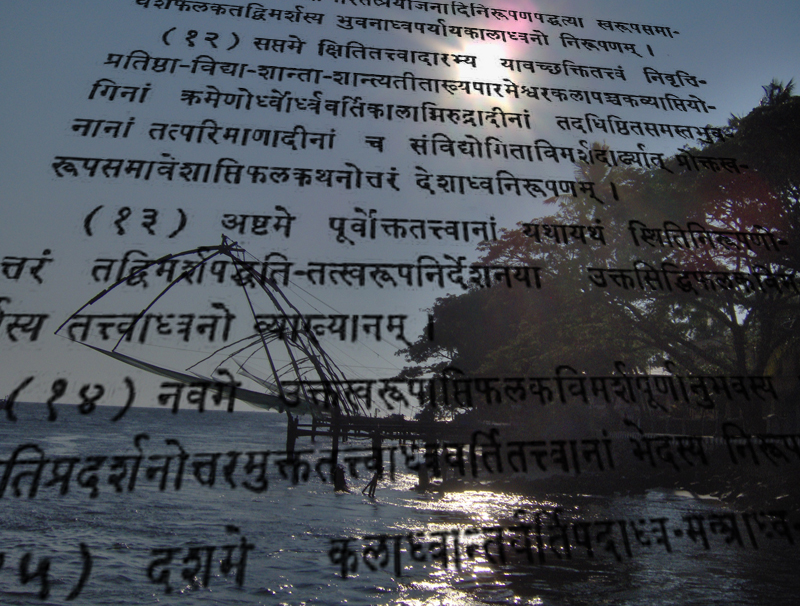 भुवनाध्वपर्यायकालाध्वनो निरूपणम् ।
(१२) सप्तमे क्षितितत्त्वादारभ्य यावच्छक्तितत्त्वं निवृत्ति-
प्रतिष्ठा-विद्या-शान्ता-शान्त्यतीताख्यपारमेश्वरकलापञ्चकव्याप्तियो-
गिनां क्रमेणोर्ध्वोर्ध्ववर्तिकालाग्निरुद्रादीनां तदधिष्ठितसमस्तभुव-
नानां तत्परिमाणादीनां च संविद्योगिताविमर्शदार्ढ्यात् प्रोक्तस्व-
रूपसमावेशाप्तिफलकथनोत्तरं देशाध्वनिरूपणम् ।
(१३) अष्टमे पूर्वोक्ततत्त्वानां यथायथं स्थितिनिरूपणो-
त्तरं तद्विमर्शपद्धति-तत्स्वरूपनिर्देशनया उक्तसिद्धिफलकविम-
र्शस्य तत्त्वाध्वनो व्याख्यानम् ।
(१४) नवमे उक्तस्वरूपाप्तिफलकविमर्शपूर्णानुभवस्य
तिप्रदर्शनोत्तरमुक्ततत्त्वाध्ववर्तितत्त्वानां भेदस्य निरूप
५) दशमे कलाध्वान्तर्वर्तिपदाध्व-मन्त्राध्व-